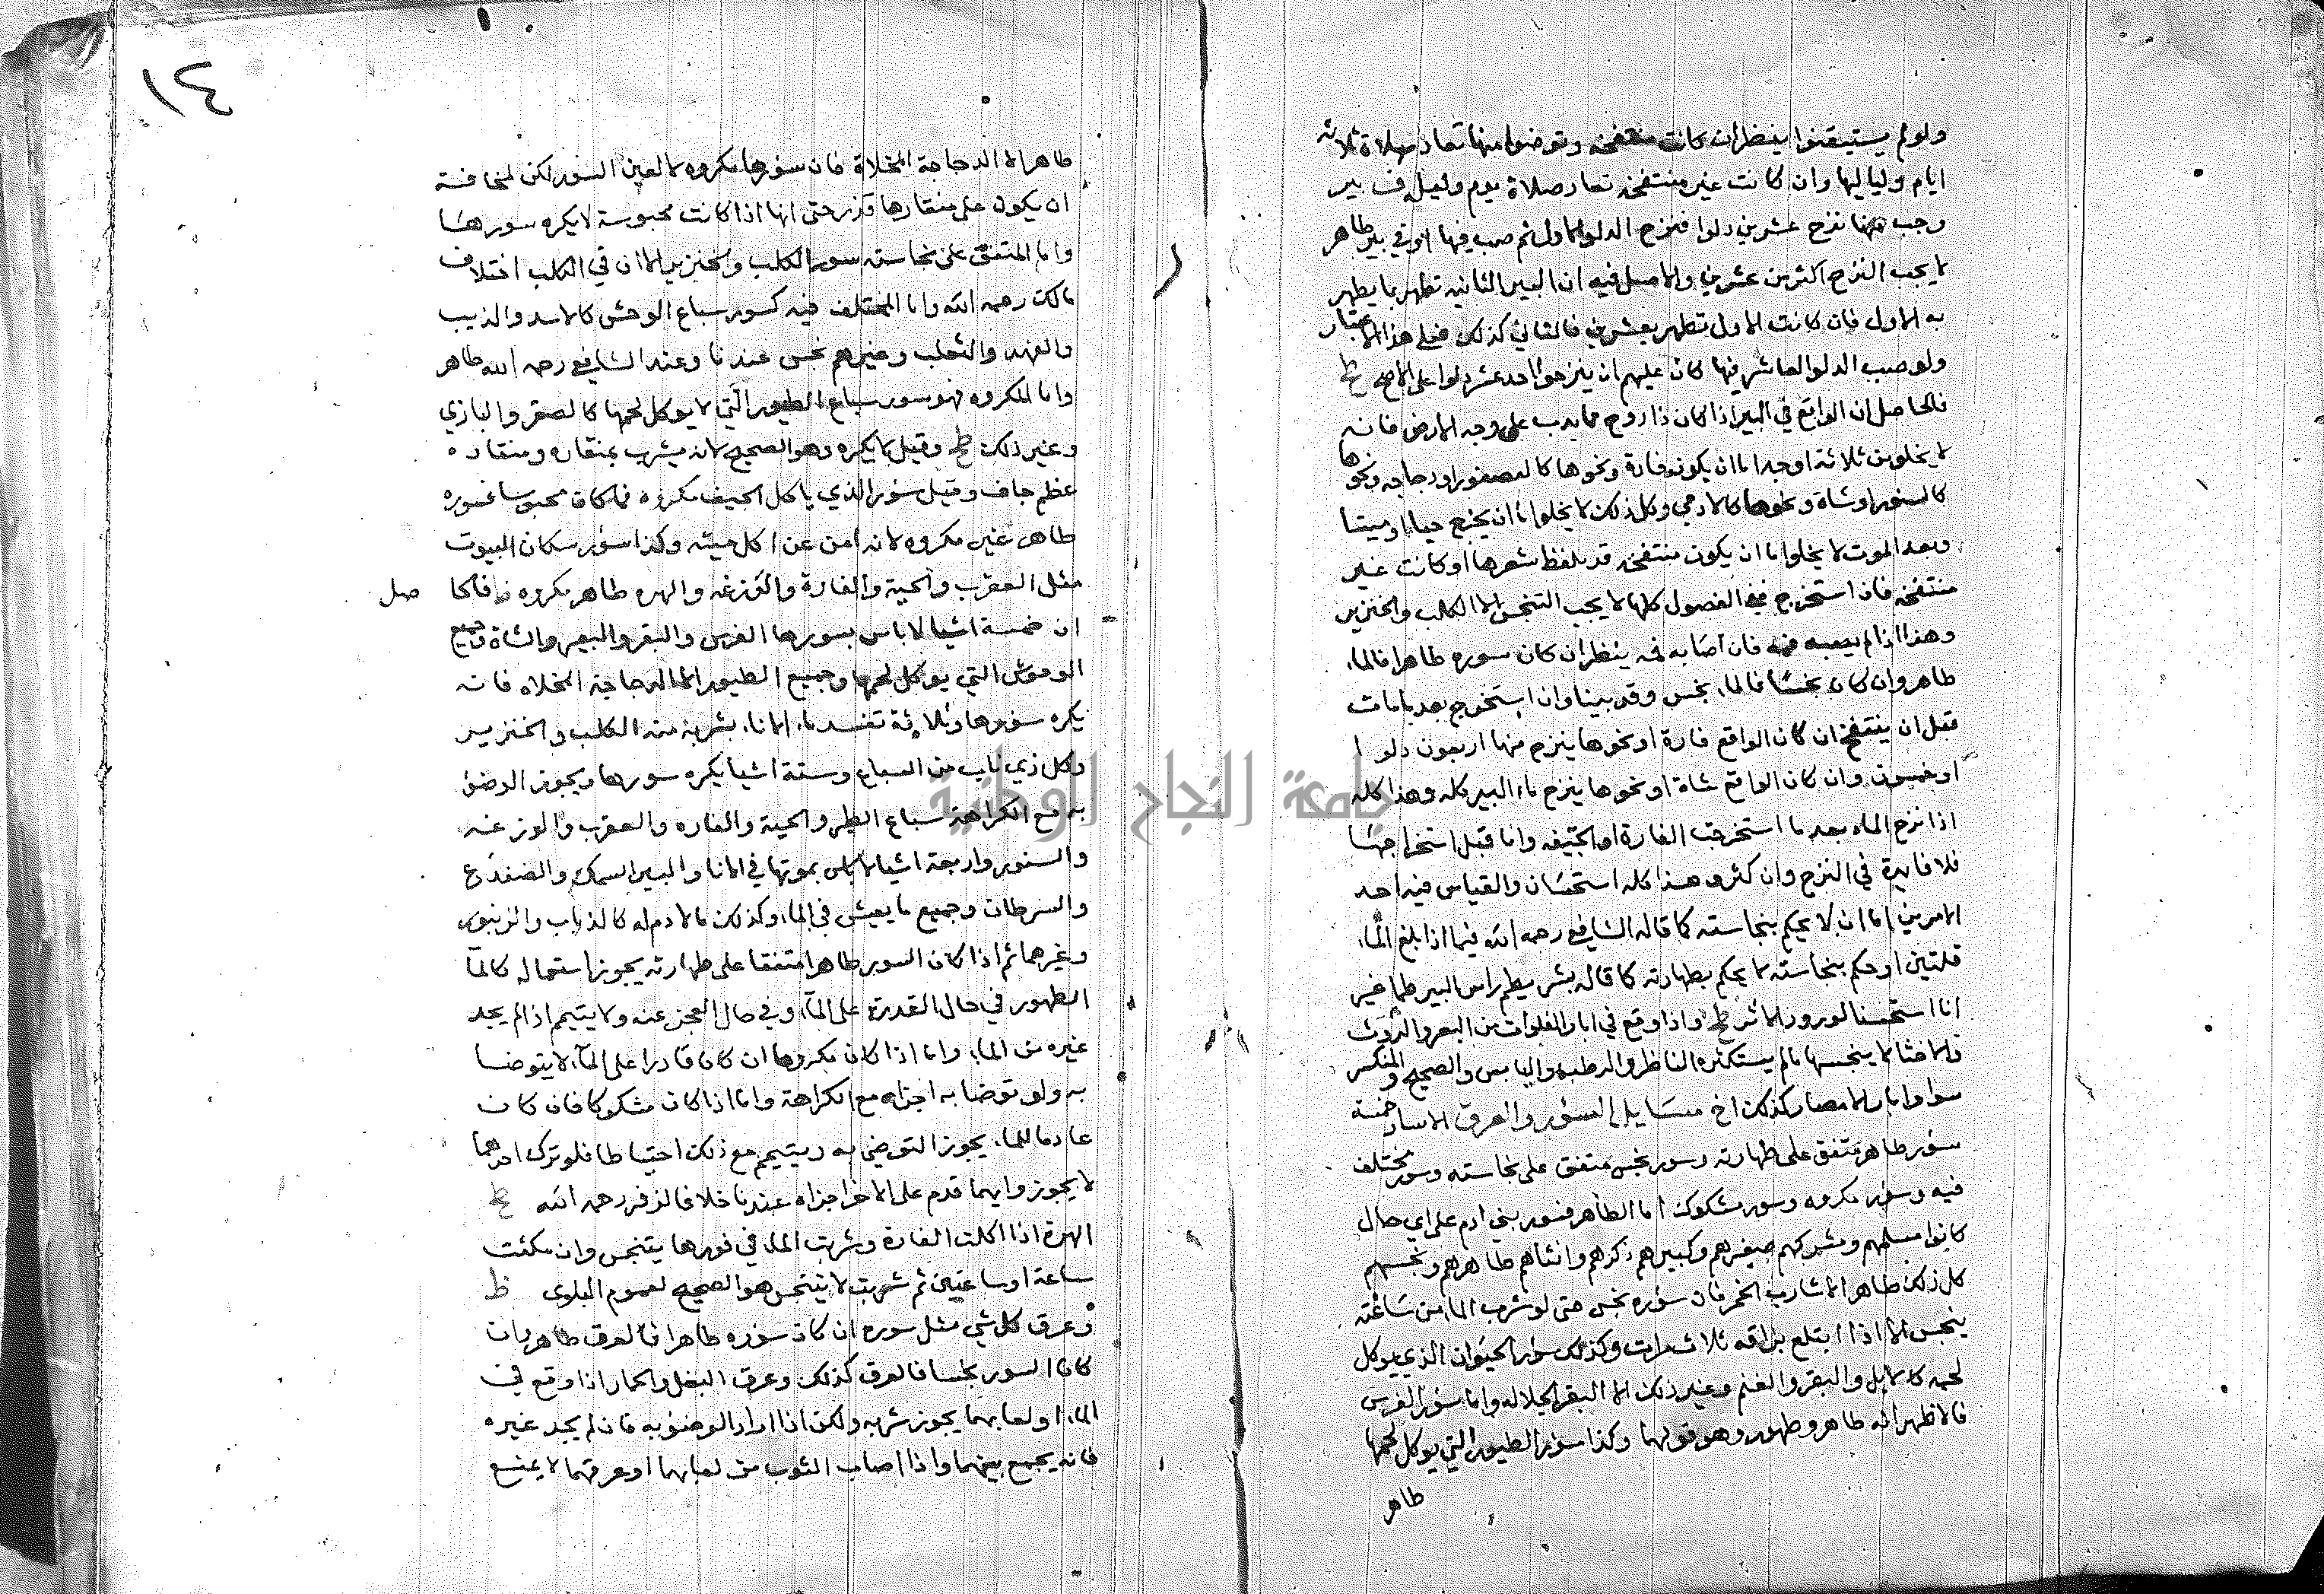 ولو لم يستيقنوا ينظر ان كانت منتفخه وتوضوا منها تعاد صلاة ثلاثه
ايام ولياليها وان كانت غير منتفخه تعاد صلاة يوم وليله ف بير
وجب منها نزح عشرين دلوا فنزح الدلو الاول ثم صب فيها او في بير طاهر
لا يجب النزح اكثر من عشرين والاصل فيه ان البير الثانيه تطهر بما يطهر
به الاول فان كانت الاول تطهر بعشرين فالثاني كذلك فعلى هذا الاعتبار
ولو صب الدلو العاشر فيها كان عليهم ان ينزحوا احد عشر دلوا على الاصح ط
فالحاصل ان الواقع في البير اذا كان ذا روح مما يدب على وجه الارض فانه
لا يخلو من ثلاثة اوجه اما ان يكون فارة ونحوها كالعصفور او دجاجه ونحوها
كالسنور او شاة ونحوها كالادمي وكل ذلك لا يخلوا اما ان يخرج حيا او ميتا
وبعد الموت لا يخلوا اما ان يكون منتفخه قد تلفظ شعرها او كانت غير
منتفخه فان استخرج ففي الفصول كلها لا يجب التنجس الا الكلب والخنزير
وهذا اذا لم يصبه فمه فان اصابه فمه ينظر ان كان سوره طاهرا فالماء
طاهر وان كان نجسا فالماء نجس وقد بينا وان استخرج بعد ما مات
قبل ان ينتفخ ان كان الواقع فارة او نحوها ينزح منها اربعون دلوا
او خمسون وان كان الواقع شاة او نحوها ينزح ماء البير كله وهذا كله
اذا نزح الماء بعد ما استخرجت الفارة او الجيفه واما قبل استخراجها
فلا فايدة في النزح وان كثر وهذا كله استحسان والقياس فيه احد
الامرين اما ان لا يحكم بنجاسته كما قاله الشافعي رحمه الله فيما اذا بلغ الماء
قلتين او حكم بنجاسته لا يحكم بطهارته كما قاله بشر يطم راس البير طما غير
انا استحسنا لورود الاثر ط واذا وقع في ابار الفلوات من البعر والروث
والاخثا لا ينجسها ما لم يستكثره الناظر والرطب واليابس والصحيح والمنكسر
سوا وابار الامصار كذلك اخ مسايل السؤر والعرق الاسار خمسة
سؤر طاهر متفق على طهارته وسور نجس متفق على نجاسته وسور مختلف
فيه وسور مكروه وسور مشكوك اما الطاهر فسور بني ادم على اي حال
كانوا مسلمهم ومشركهم صغيرهم وكبيرهم ذكرهم وانثاهم طاهرهم ونجسهم
كل ذلك طاهر الا شارب الخمر فان سؤره نجس حتى لو شرب الماء من ساعته
ينجس الا اذا ابتلع بزاقه ثلاث مرات وكذلك سور الحيوان الذي يوكل
لحمه كالابل والبقر والغنم وغير ذلك الا البقر الجلاله واما سؤر الفرس
فالاظهر انه طاهر وطهور وهو قولهما وكذا سؤر الطيور التي يوكل لحمها
طاهر
١٤
طاهر الا الدجاجة المخلاة فان سؤرها مكروه لا لعين السور لكن لمخافة
ان يكون على منقارها قذر حتى انها اذا كانت محبوسة لا يكره سورها
واما المتفق على نجاسته سور الكلب والخنزير الا ان في الكلب اختلاف
مالك رحمه الله واما المختلف فيه كسور سباع الوحش كالاسد والذيب
والفهد والثعلب وغيرهم نجس عندنا وعند الشافعي رحمه الله طاهر
واما المكروه فهو سور سباع الطيور التي لا يوكل لحمها كالصقر والبازي
وغير ذلك ط وقيل لا يكره وهو الصحيح لانه يشرب بمنقاره ومنقاره
عظم جاف وقيل سور الذي ياكل الجيف مكروه فما كان محبوسا فسوره
طاهر غير مكروه لانه امن عن اكل ميته وكذا سؤر سكان البيوت
مثل العقرب والحية والفارة والوزغه والهره طاهر مكروه فالحا صل
ان خمسة اشيا لا باس بسورها الفرس والبقر والبعير والشاة وجميع
الوحوش التي يوكل لحمها وجميع الطيور الا الدجاجة المخلاه فانه
يكره سؤرها وثلاثة تفسد ماء الاناء بشربه منه الكلب والخنزير
وكل ذي ناب من السباع وستة اشيا يكره سورها ويجوز الوضؤ
به مع الكراهة سباع الطير والحية والفاره والعقرب والوزغه
والسنور واربعة اشيا لا باس بموتها في الانا والبير السمك والضفدع
والسرطان وجميع ما يعيش في الماء وكذلك ما لا دم له كالذباب والزنبور
وغيرهما ثم اذا كان السور طاهرا متفقا على طهارته يجوز استعماله كالمآ
الطهور في حال القدرة على المآء وفي حال العجز عنه ولا يتيمم اذا لم يجد
غيره من الماء واما اذا كان مكروها ان كان قادرا على المآء لا يتوضا
به ولو توضا به اجزاه مع الكراهة واما اذا كان مشكوكا فان كان
عادما للماء يجوز التوضي به ويتيمم مع ذلك احتياطا فلو ترك احدهما
لا يجوز وايهما قدم على الاخر اجزاه عندنا خلافا لزفر رحمه الله ط
الهرة اذا اكلت الفارة وشربت الماء في فورها يتنجس وان مكثت
ساعة او ساعتين ثم شربت لا يتنجس هو الصحيح لعموم البلوى ظ
وعرق كل شي مثل سوره ان كان سؤره طاهرا فالعرق طاهر وان
كان السور نجسا فالعرق كذلك وعرق البغل والحمار اذا وقع في
الماء او لعابهما يجوز شربه ولكن اذا اراد الوضؤ به فان لم يجد غيره
فانه يجمع بينهما واذا اصاب الثوب من لعابهما او عرقهما لا يمنع
جامعة النجاح الوطنية